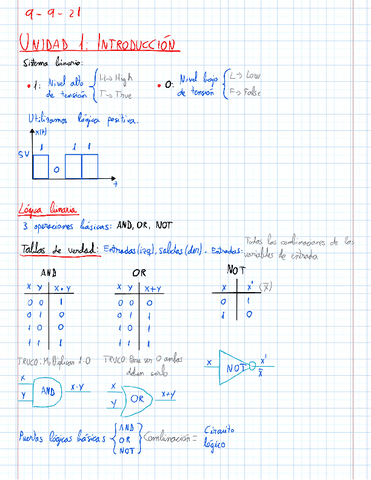 9-9-21
UNIDAD 1: INTRODUCCIÓN
Sistema binario:
• 1: Nivel alto de tensión { H → High
T → True
• 0: Nivel bajo de tensión { L → Low
F → False
Utilizamos lógica positiva.
x(t)
1 1 1
5V
0
Lógica binaria
3 operaciones básicas: AND, OR, NOT
Tablas de verdad: Entradas (izq), salidas (der). Entradas: Todas las combinaciones de las variables de entrada
AND
x y x·y
OR
x y x+y
NOT
x x' (x̄)
TRUCO: Multiplicar 1·0
TRUCO:
x
y
AND
x·y
x
y
OR
x+y
x
NOT
x'
x̄
Puertas lógicas básicas { AND
OR
NOT } Combinación = Circuito lógico